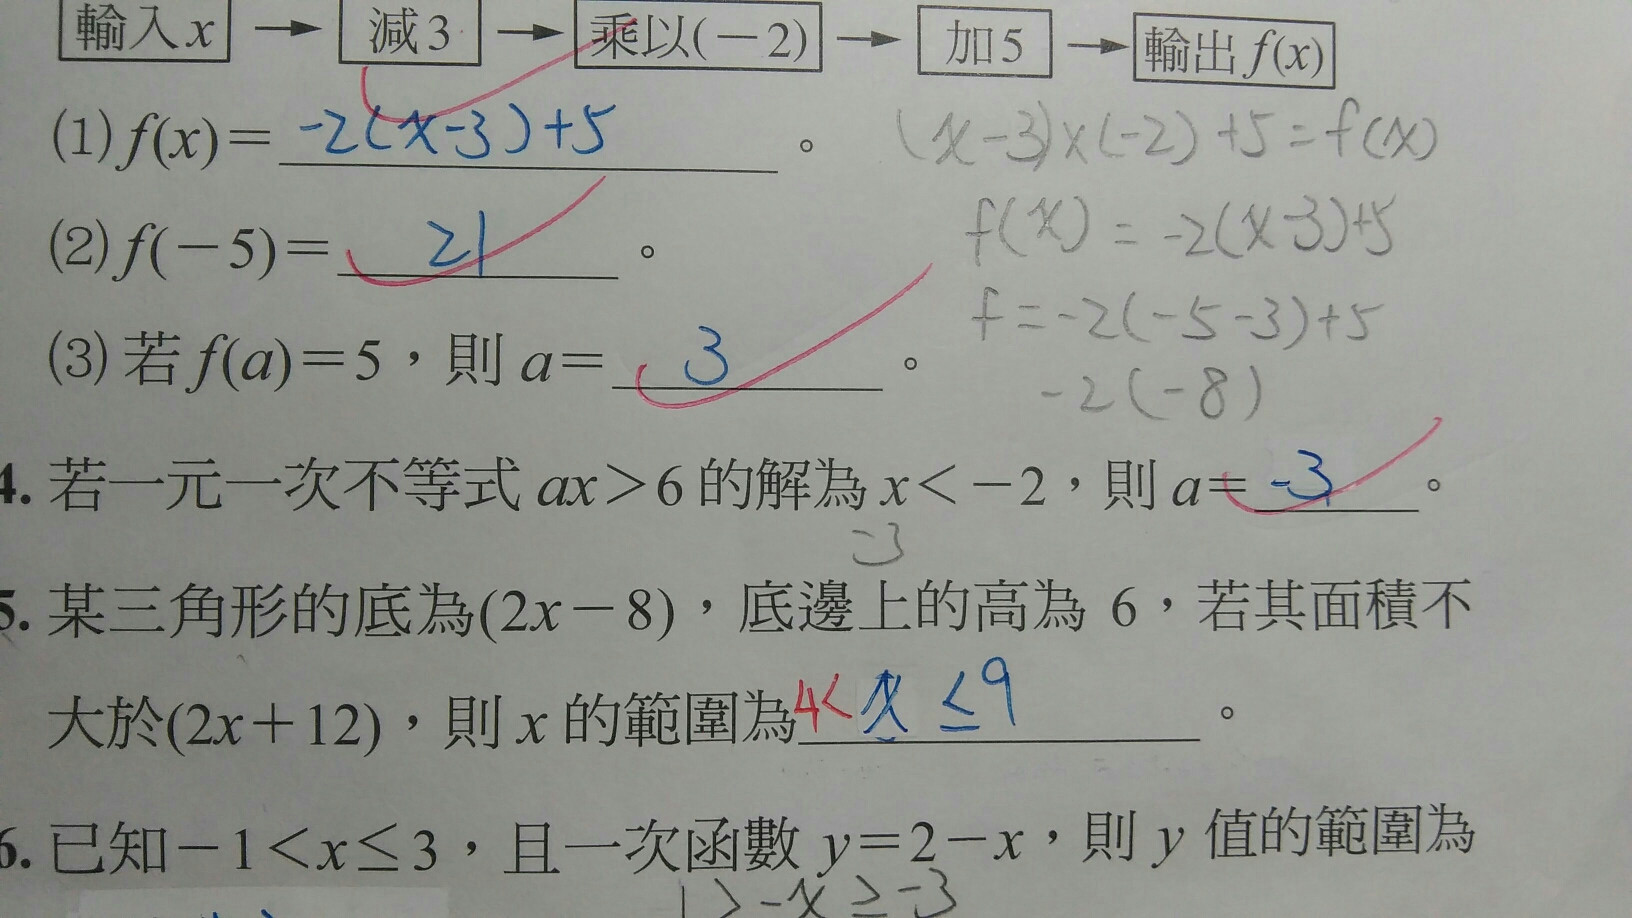 輸入x → 減3 → 乘以(－2) → 加5 → 輸出f(x)
(1) f(x)＝ -2(x-3)+5 。
(x-3)x(-2)+5=f(x)
f(x) = -2(x-3)+5
(2) f(－5)＝ 21 。
f=-2(-5-3)+5
(3) 若 f(a)＝5，則 a＝ 3 。
-2(-8)
4. 若一元一次不等式 ax＞6 的解為 x＜－2，則 a＝ -3 。
-3
5. 某三角形的底為(2x－8)，底邊上的高為 6，若其面積不
大於(2x＋12)，則 x 的範圍為 4< x ≤9 。
6. 已知－1＜x≤3，且一次函數 y＝2－x，則 y 值的範圍為
1>-x≥-3